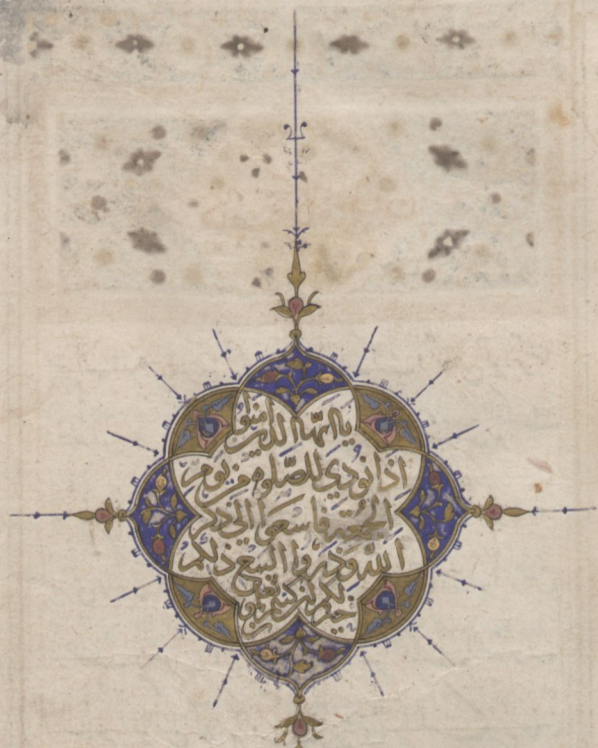 يا ايها الذين امنوا
اذا نودي للصلوة من يوم
الجمعة فاسعوا الى ذكر
الله وذروا البيع ذلكم
خير لكم ان كنتم تعلمون